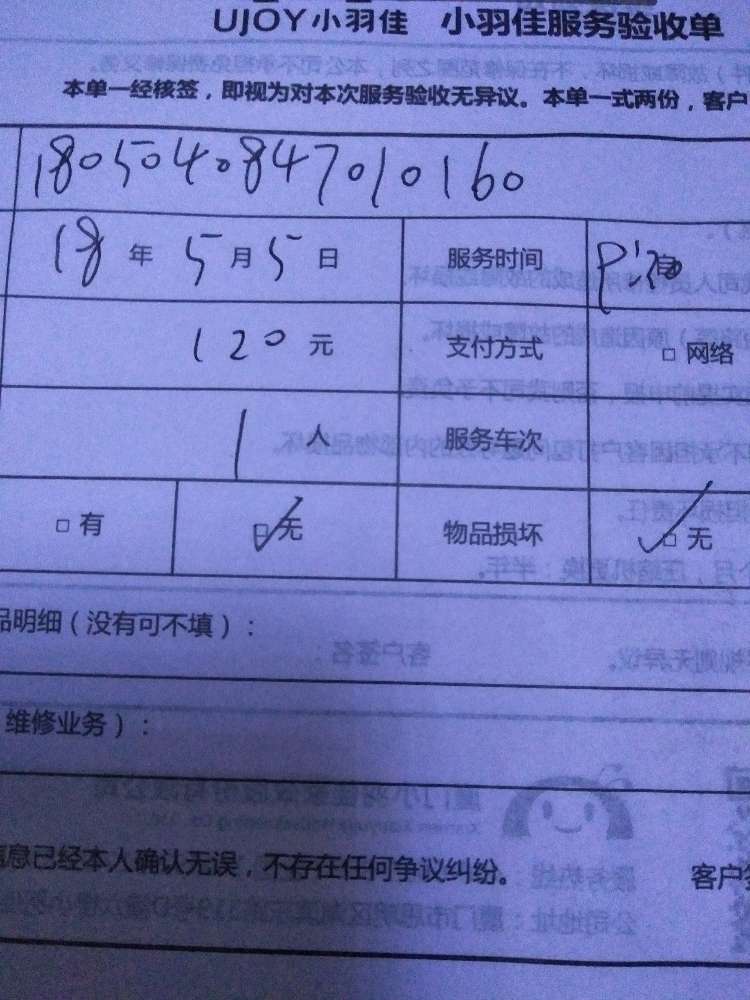 UJOY小羽佳 小羽佳服务验收单
本单一经核签，即视为对本次服务验收无异议。本单一式两份，客户
1805040847010160
18年5月5日 服务时间
120元 支付方式 □ 网络
1人 服务车次
□ 有 □ 无 物品损坏 □ 无
品明细（没有可不填）：
维修业务）：
信息已经本人确认无误，不存在任何争议纠纷。 客户签